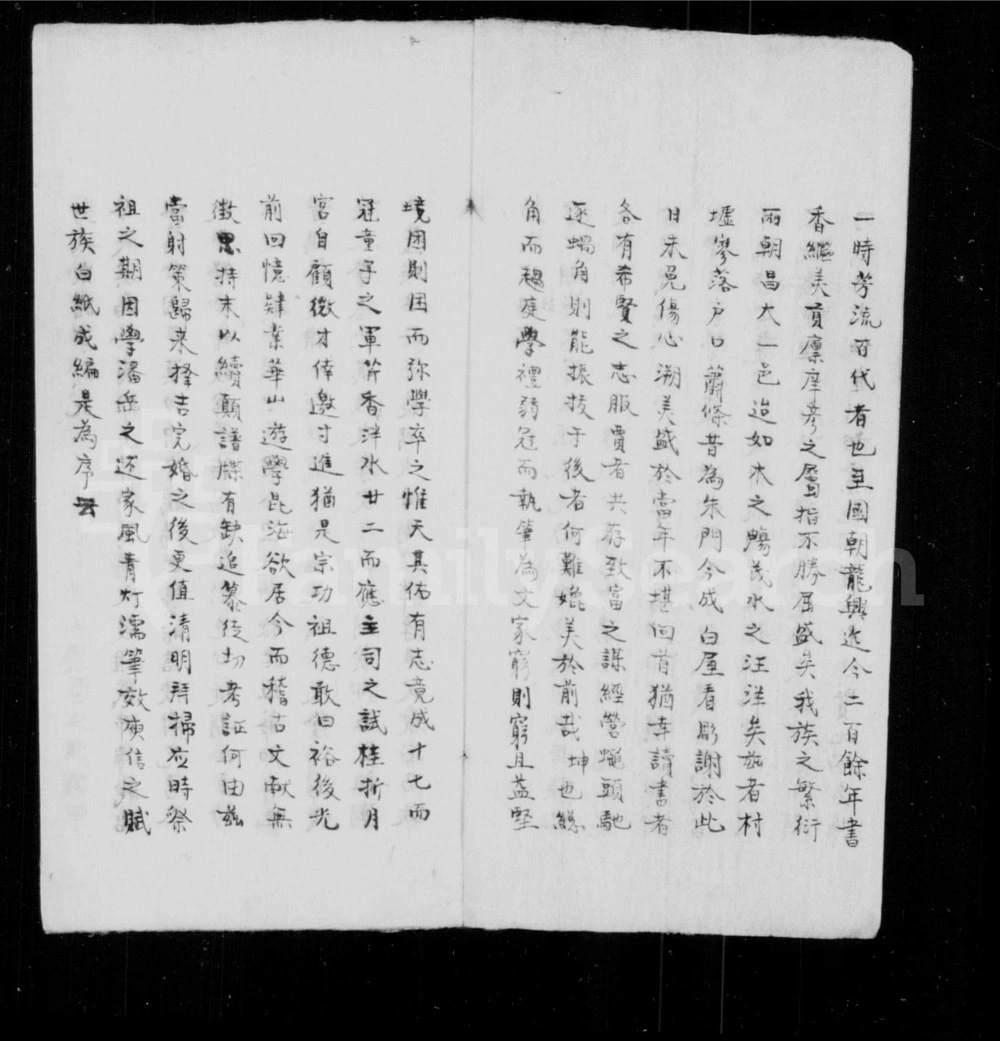 一時芳流百代者也至國朝龍興迄今二百餘年書
香繼美貢廪庠彥之屬指不勝屈盛矣我族之繁衍
兩朝昌大一邑迨如木之暢茂水之汪洋矣茲者村
墟寥落戶口蕭條昔為朱門今成白屋看彫謝於此
日未免傷心溯美盛於當年不堪回首猶幸讀書者
各有希賢之志服賈者共存致富之謀經營蠅頭馳
逐蝸角則能振拔于後者何難媲美於前哉坤也總
角而趨庭學禮弱冠而執筆為文家窮則窮且益堅
境困則困而弥學卒之惟天其佑有志竟成十七而
冠童子之軍芹香泮水廿二而應主司之試桂折月
宮自顧微才倖邀寸進猶是宗功祖德敢曰裕後光
前回憶肄業華山遊學昆海欲居今而稽古文献無
徴思持末以續顛譜牒有缺追篡後切考証何由茲
當射策歸來擇吉完婚之後更值清明拜掃及時祭
祖之期因學潘岳之述家風青灯濡筆效庾信之賦
世族白紙成編是為序云
FamilySearch